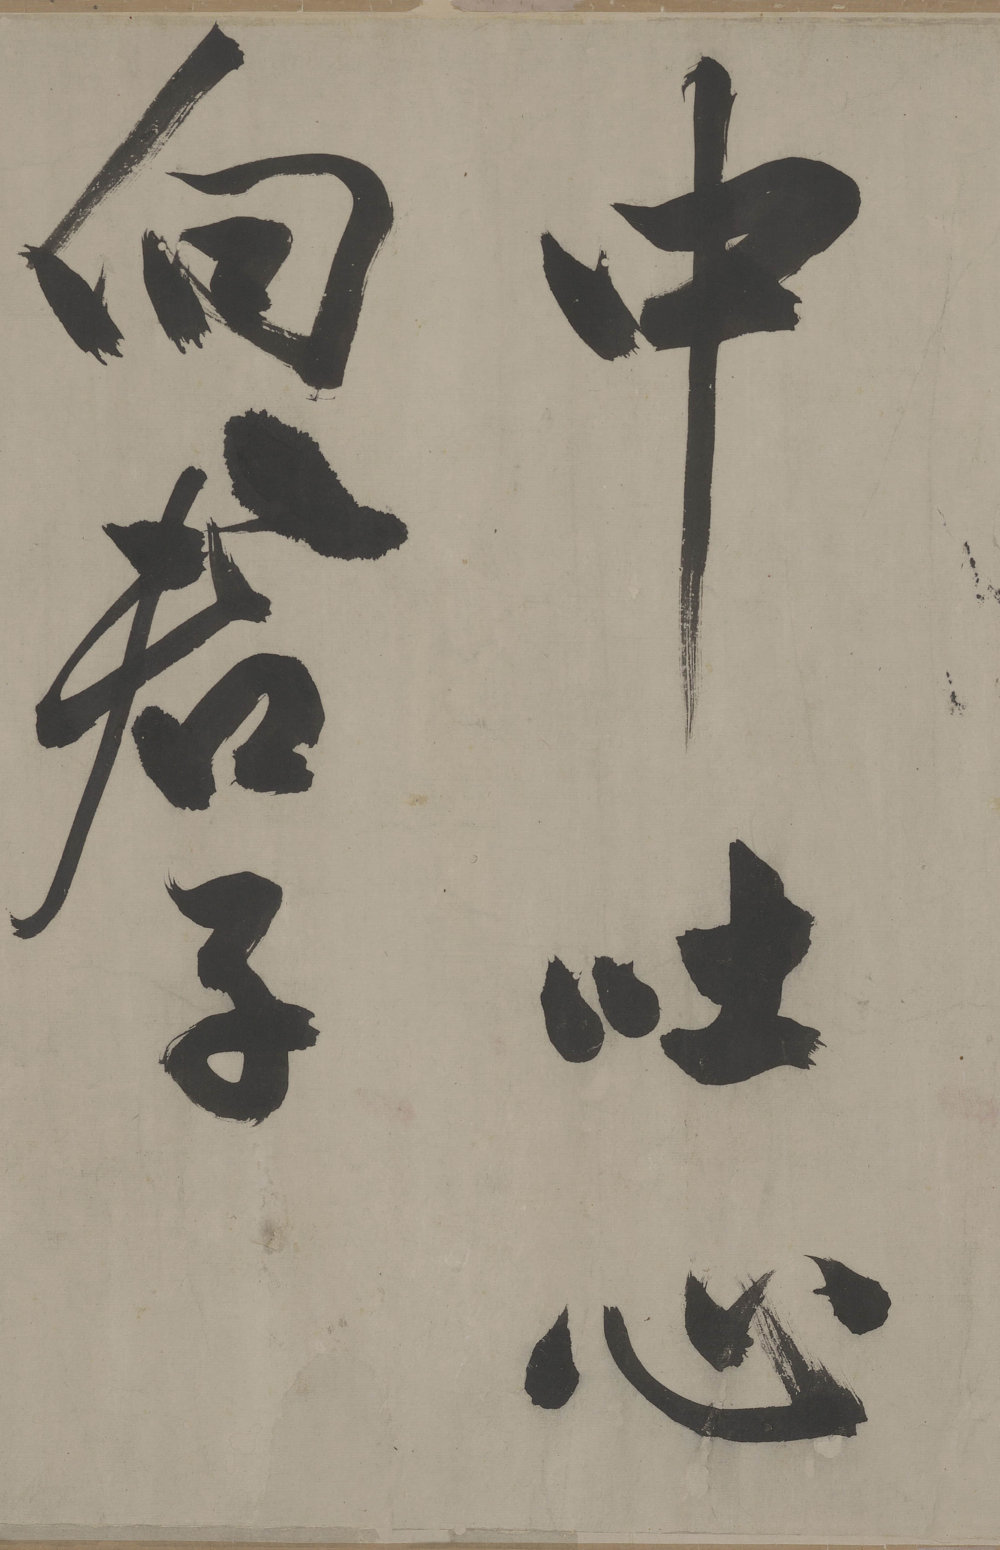 中吐心
向君子